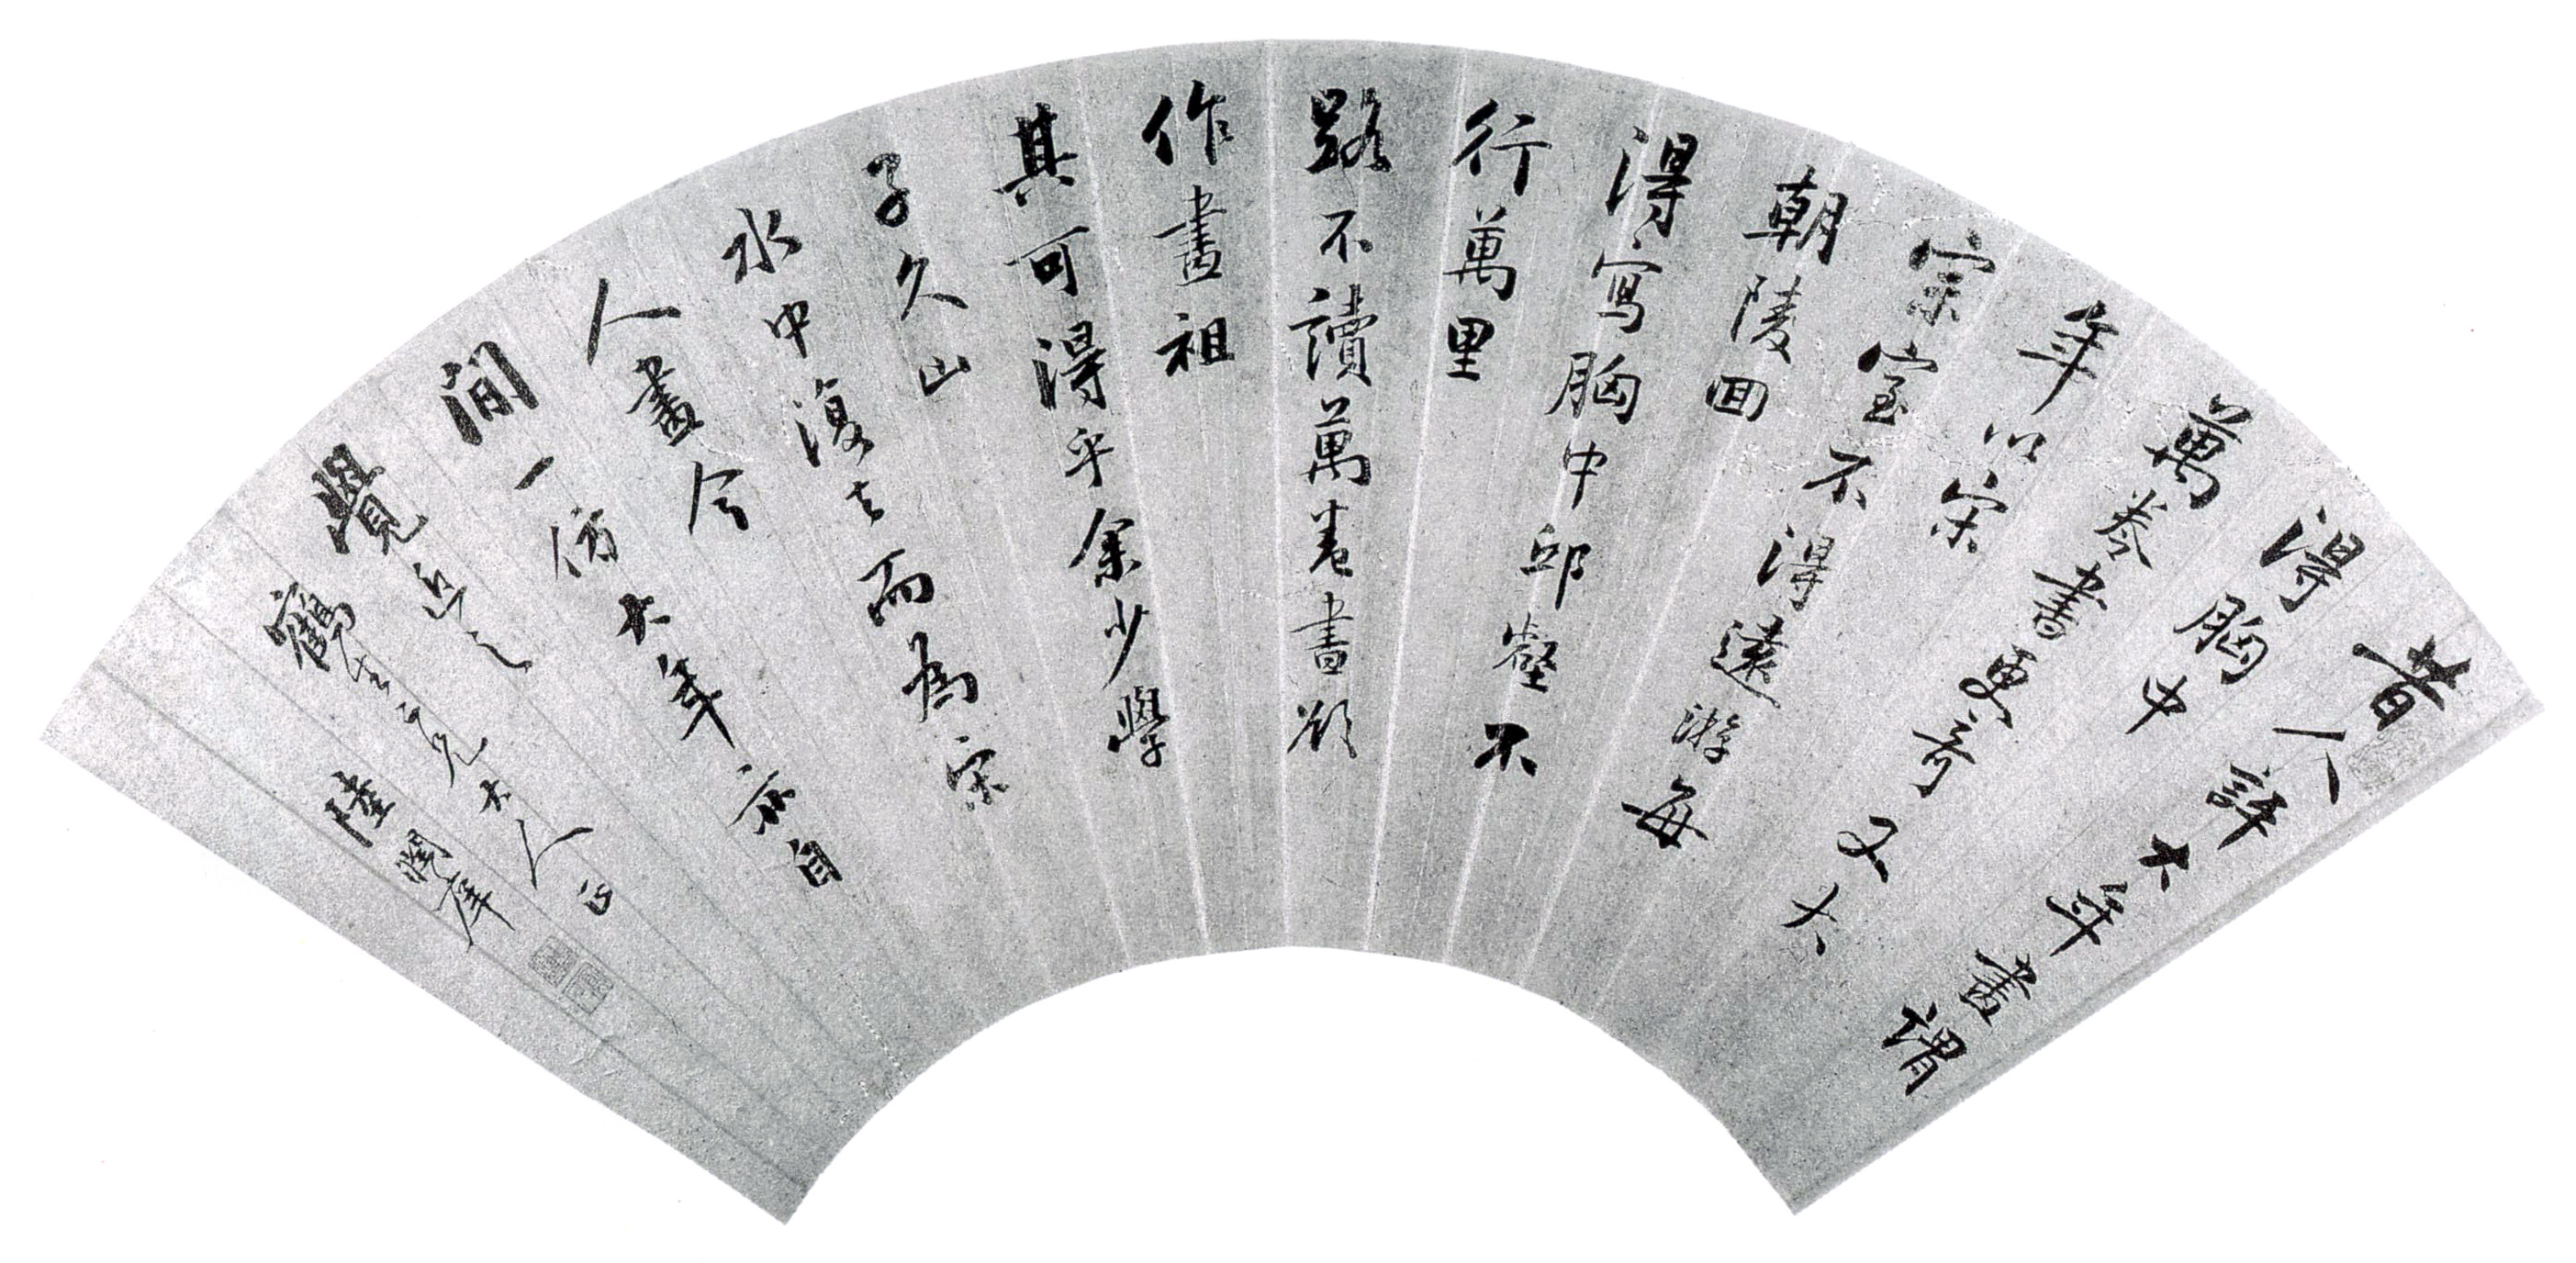 昔人評大年畫謂
得胸中
萬卷書更奇又大
年以宋
宗室不得遠游每
朝陵回
得寫胸中邱壑不
行萬里
路不讀萬卷書欲
作畫祖
其可得乎余少學
子久山
水中復去而為宋
人畫今
間一仿大年亦自
覺近之
鶴生立兄大人正
陸潤庠